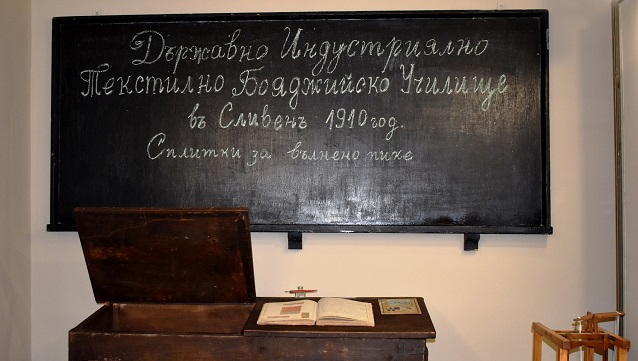 Държавно Индустриялно
Текстилно Бояджийско Училище
въ Сливенъ 1910 год.
Сплитки за вълнено пике